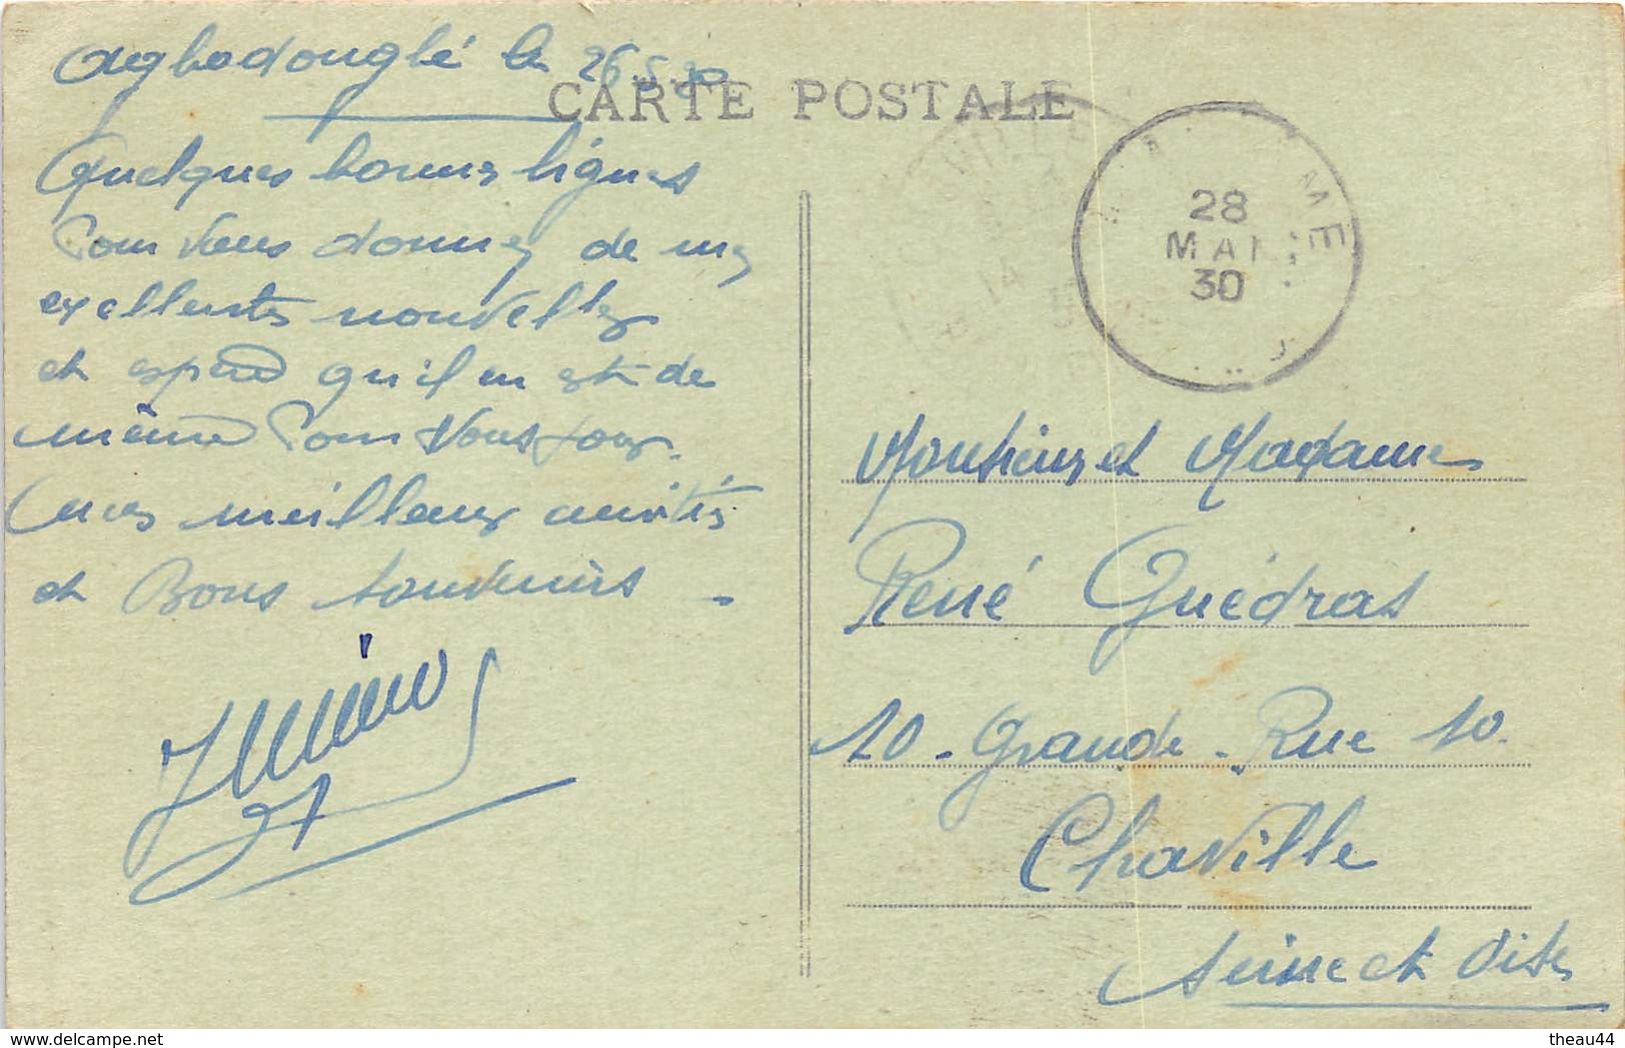 Agbadouglé le 26.5.30
CARTE POSTALE
Quelques bonnes lignes
Pour Vous donner de mes
excellentes nouvelles
et espère qu'il en est de
même Pour Vous tous.
mes meilleurs amitiés
et Bons souvenirs -
28
MAI
30
ME
14
Monsieur et Madame
René Guédras
10 - Grande - Rue 10.
Chaville
Seine et Oise
delcampe.net
theau44